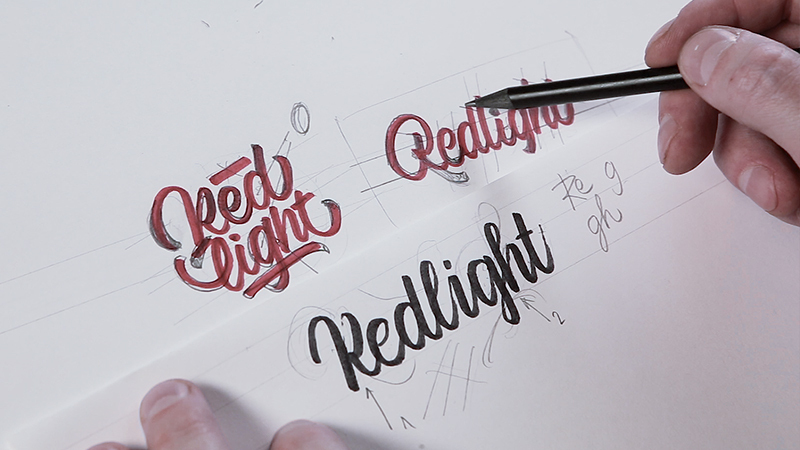 Red
light
Redlight
Redlight
Re g
gh
2